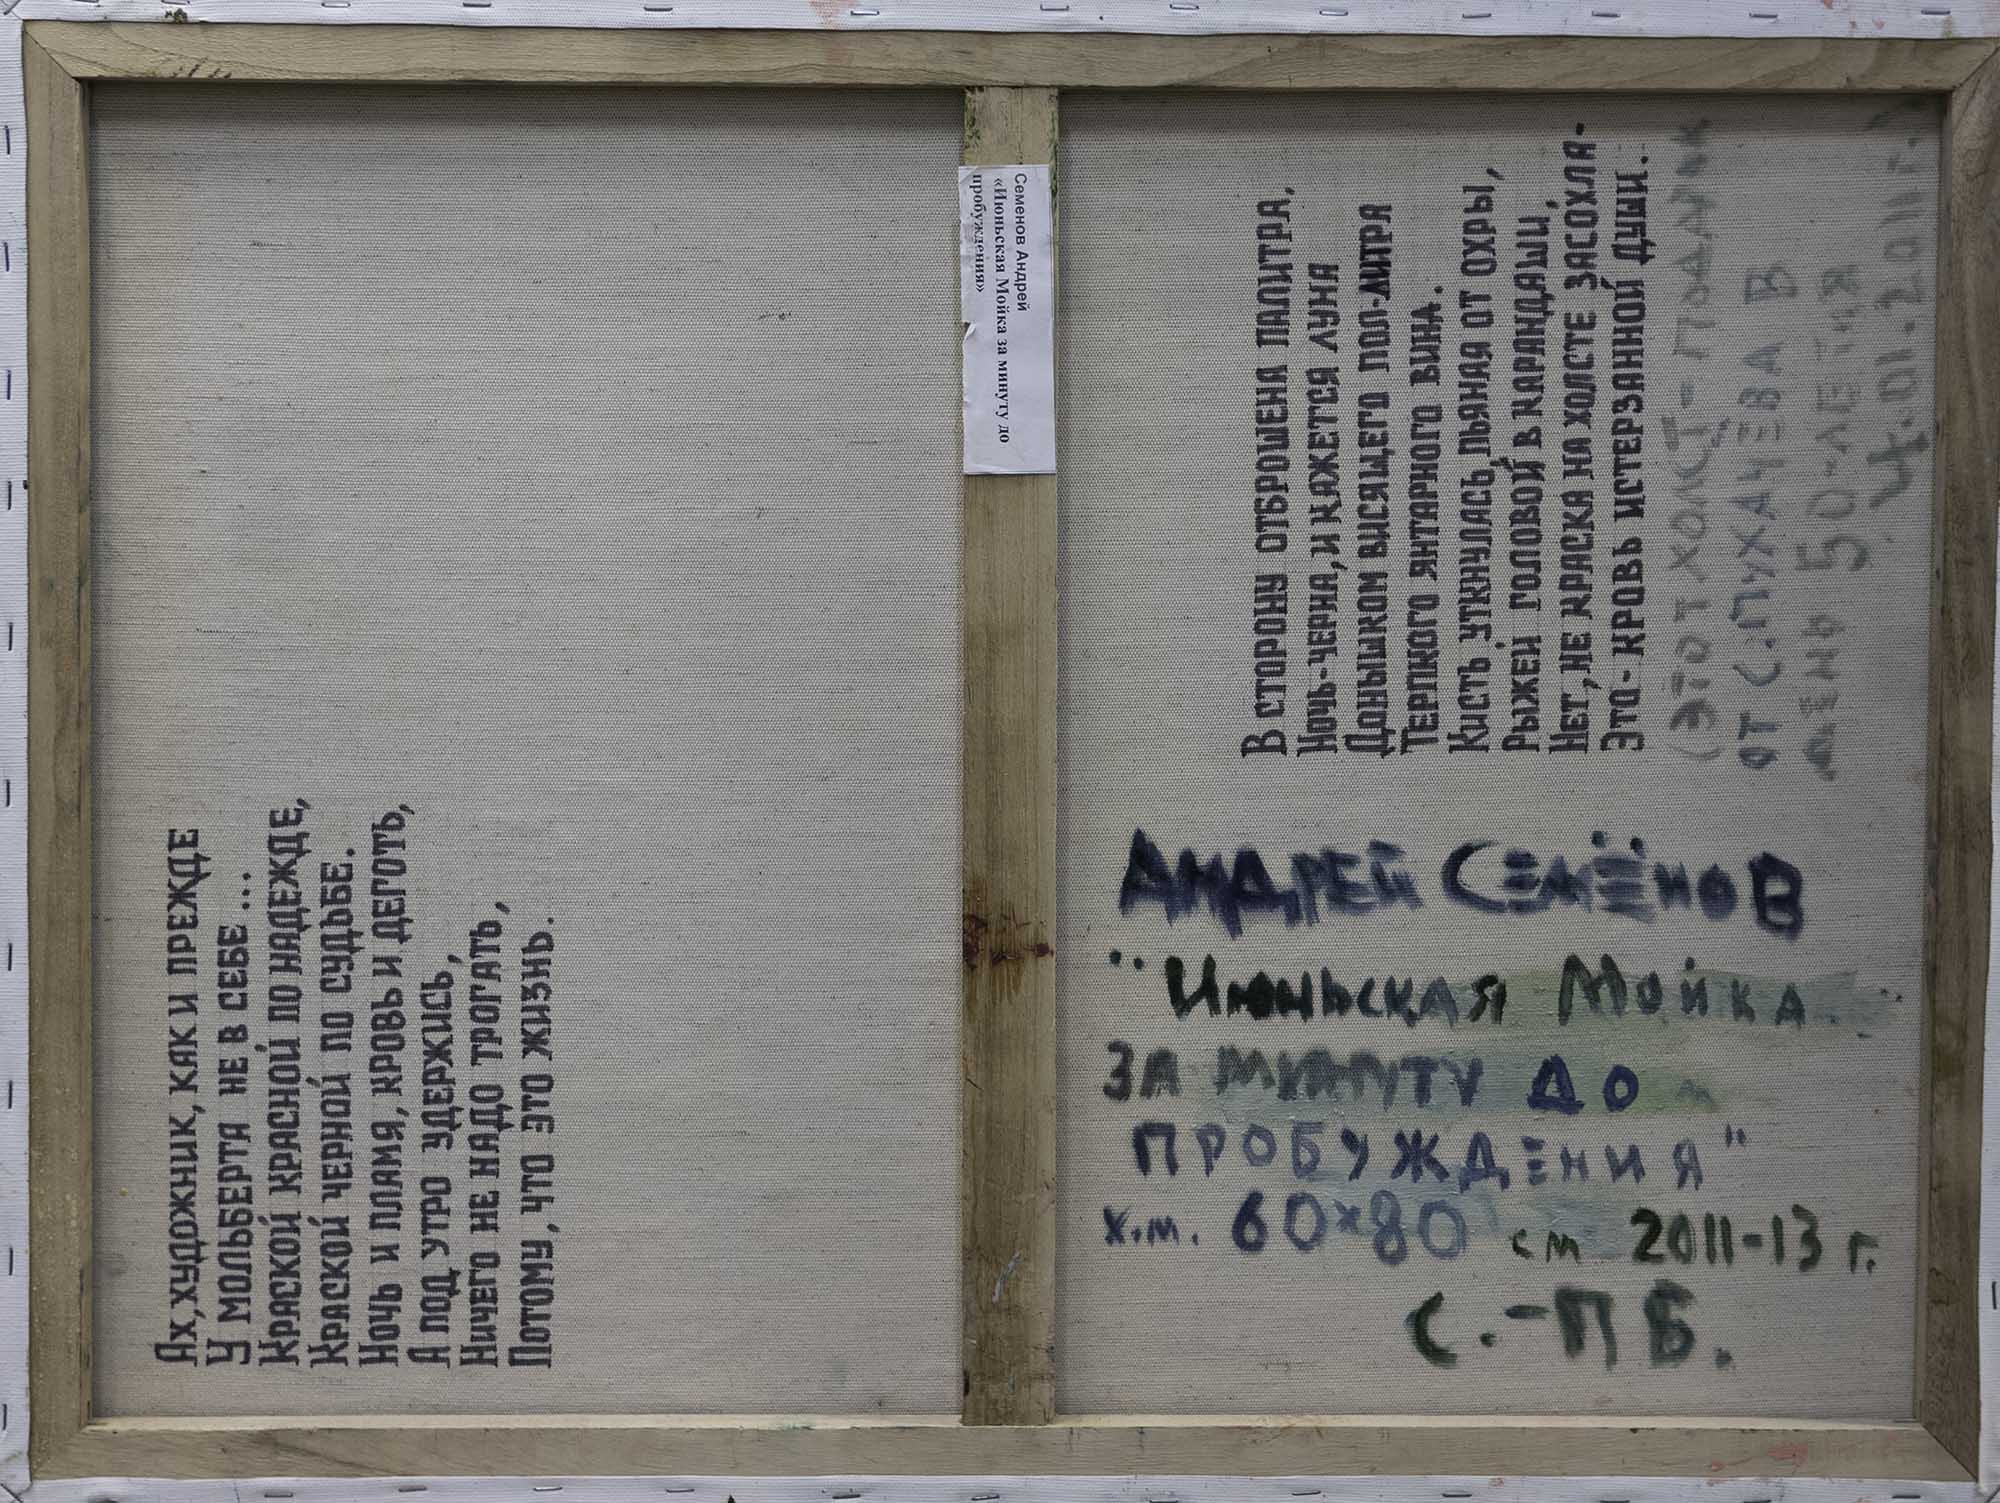 Ах, художник, как и прежде
У мольберта не в себе...
Краской красной по надежде,
Краской черной по судьбе.
Ночь и пламя, кровь и деготь,
А под утро удержись,
Ничего не надо трогать,
Потому, что это жизнь.
Семенов Андрей
«Июньская Мойка за минуту до
пробуждения»
В сторону отброшена палитра,
Ночь-черна, и кажется луна
Донышком висящего пол-литра
Терпкого янтарного вина.
Кисть уткнулась, пьяная от охры,
Рыжей головой в карандаши,
Нет, не краска на холсте засохла-
Это - кровь истерзанной души.
(Этот холст - подарок
от С. Пухачёва в
день 50-летия
4.01.2011 г.)
Андрей Семёнов
"Июньская Мойка
за минуту до
пробуждения"
х.м. 60×80 см 2011-13 г.
С.-ПБ.